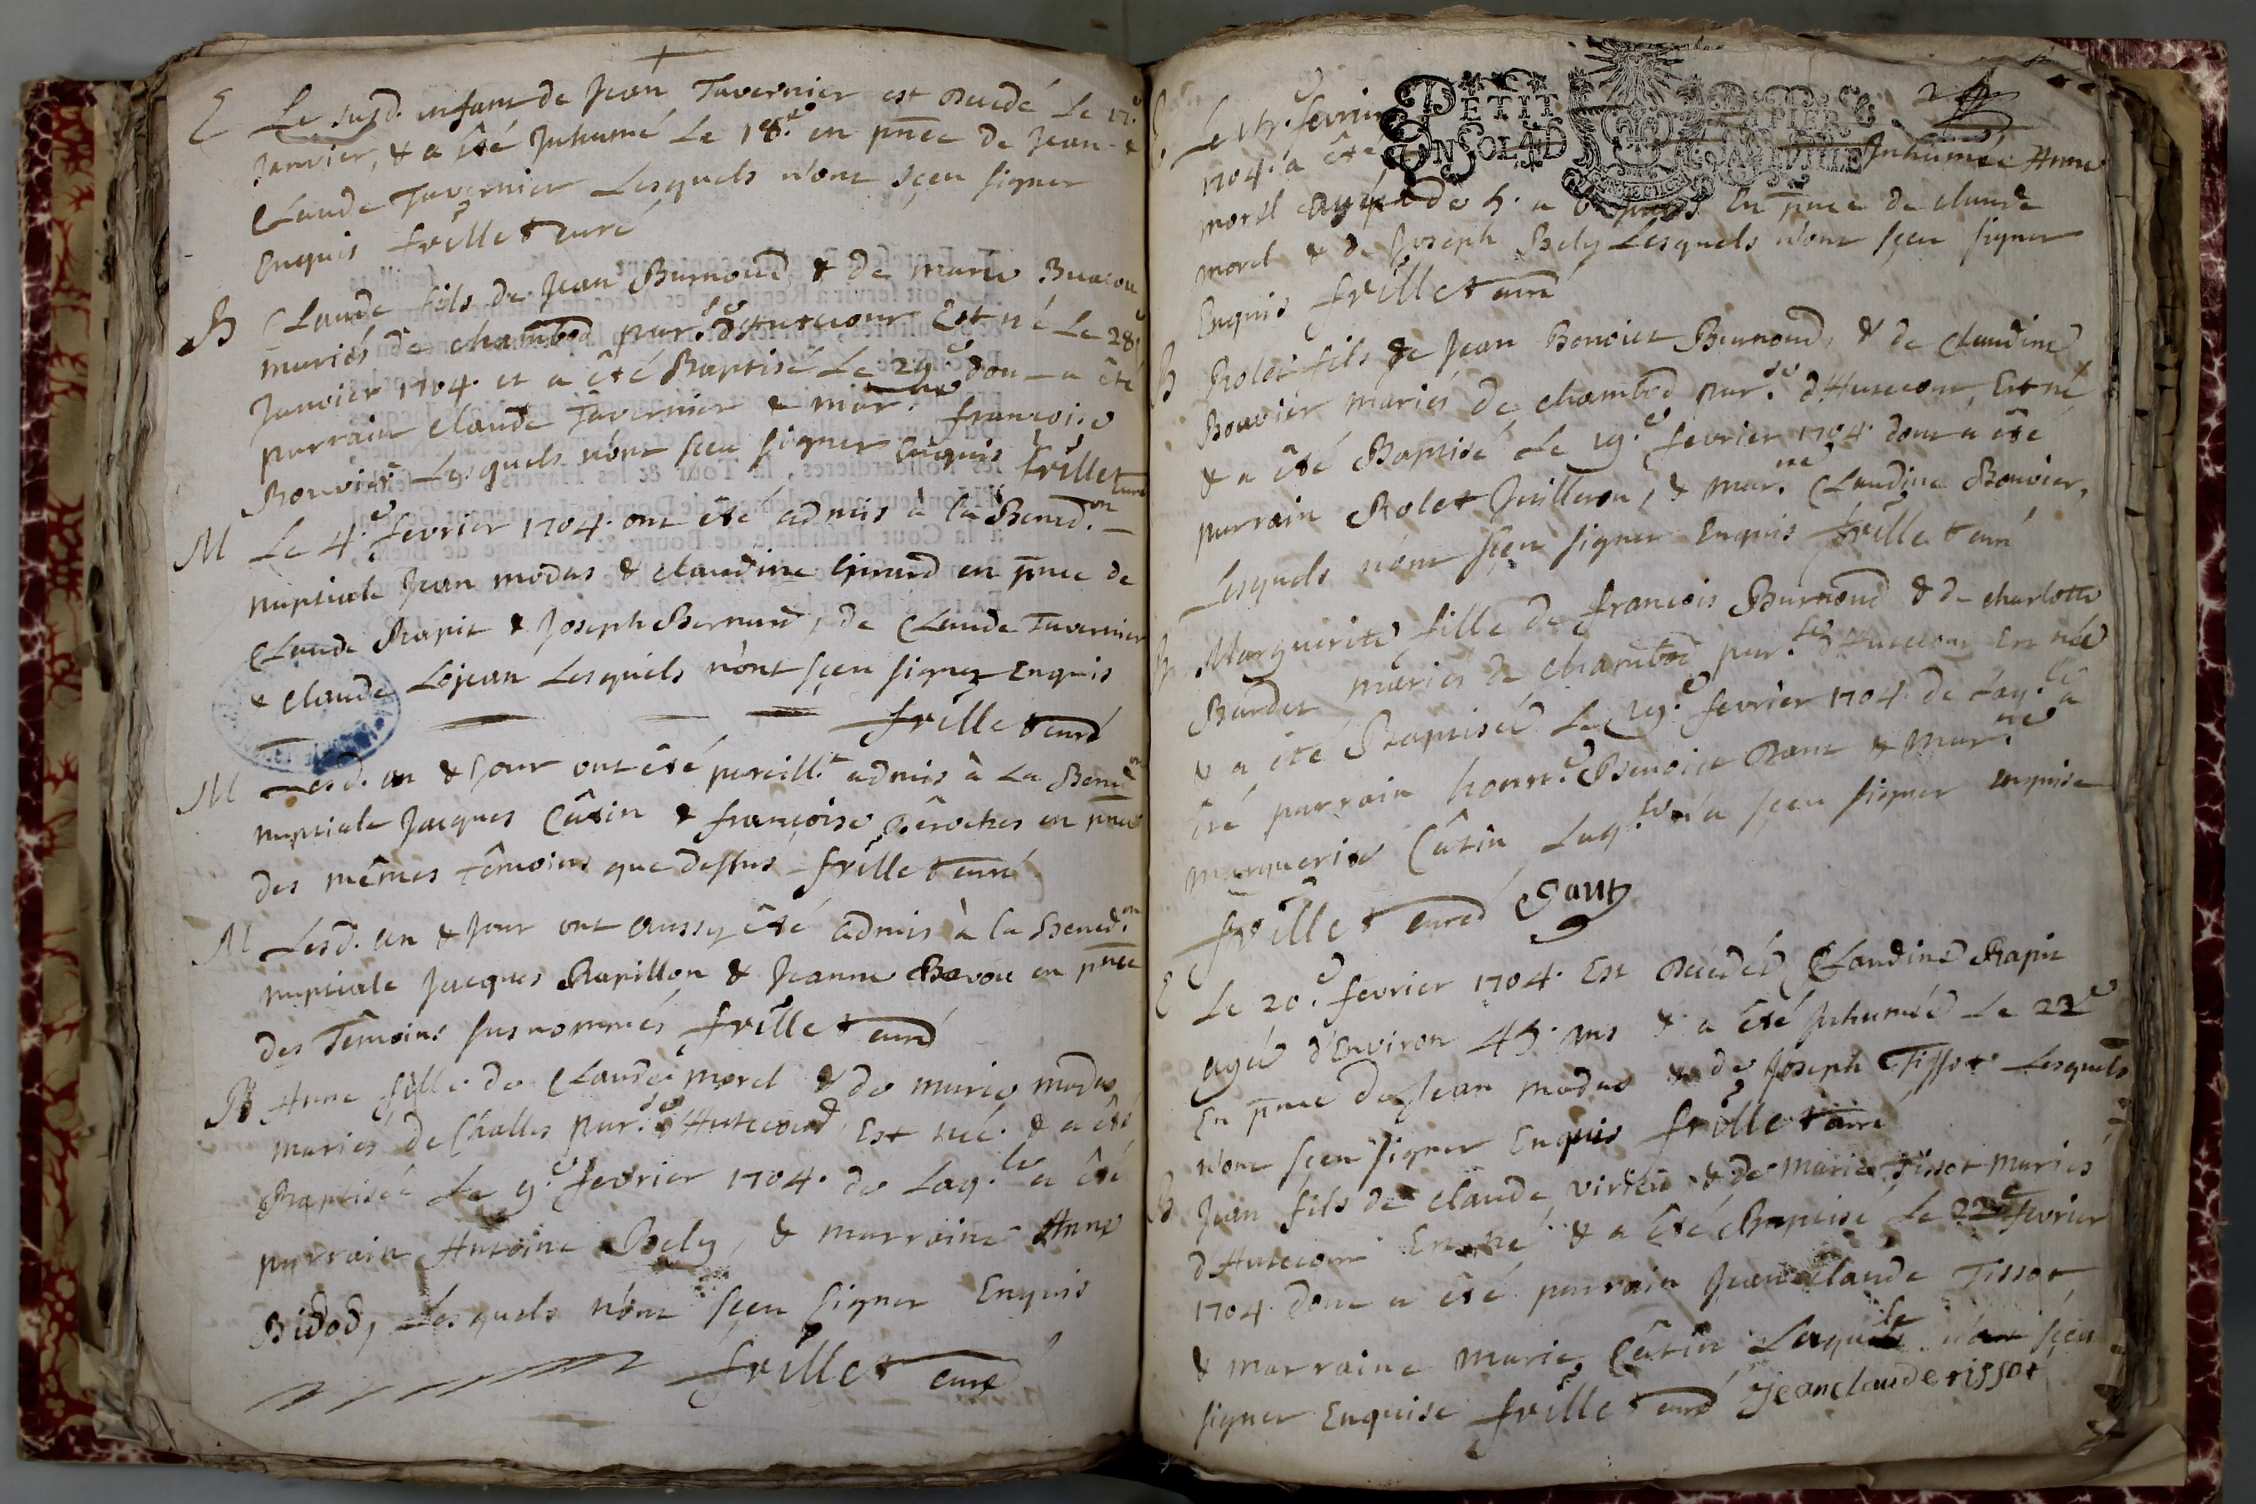 E Le susd. enfant de Jean Tavernier est decedé Le 17.e
Janvier, & a êté Inhumé Le 18.e en pñce de Jean &
Claude Tavernier Lesquels n'ont sçeu signer
Enquis frillet curé
B Claude fils de Jean Burnoud & de marie
mariés de chambod par.se d'Hutecour Est né Le 28e
Janvier 1704. et a êté Baptisé Le 29.e dont a êté
parrain claude Tavernier & mar.ne françoise
Bouvier Lesquels n'ont sçeu signer Enquis frillet curé
M Le 4.e fevrier 1704. ont êté admis à la Bened.on
nuptiale Jean modas & claudine Girard en pñce de
Claude Rapit & Joseph Bernard, de Claude Tavernier
& claude Lojean Lesquels n'ont sçeu signer Enquis
frillet curé
M Lesd. an & Jour ont êté pareill.t admis à La Bened.on
nuptiale Jacques Câtin & françoise en pñce
des mêmes têmoins que dessus frillet curé
M Lesd. an & Jour ont aussy êté admis à la Bened.on
nuptiale Jacques Rapillon & Jeanne en pñce
des Têmoins susnommés frillet curé
B Anne fille de Claude morel & de marie modas
mariés de Challes par.se d'Hutecourt, Est née & a êté
Baptisée Le 9.e fevrier 1704. de Laq.le a êté
parrain Antoine Bely, & marraine Anne
Bidod, Lesquels n'ont sçeu signer Enquis
frillet curé
PETIT PAPIER
EN SOL 4 D
Le fevrier
1704. a êté Inhumée Anne
morel en pñce de claude
morel & de Joseph Bely Lesquels n'ont sçeu signer
Enquis frillet curé
B Rolet fils de Jean Benoict Burnoud, & de claudine
Bouvier mariés de chambod par.se d'Hutecour, Est né
& a êté Baptisé Le 19.e fevrier 1704. dont a êté
parrain Rolet Juilleron, & mar.ne Claudine Bouvier,
Lesquels n'ont sçeu signer Enquis frillet curé
B Marguerite fille de françois Burnoud & de charlotte
Bardet mariés de chambod par.se d'Hutecour Est née
& a êté Baptisée Le 19.e fevrier 1704. de Laq.le a
êté parrain honn.e Benoict & mar.ne
marguerite Câtin Laq.le n'a sçeu signer enquise
frillet curé
E Le 20.e fevrier 1704. Est decedée Claudine Rapit
agée d'Environ 45. ans & a êté Inhumée Le 22e
En pñce de Jean modas & de Joseph Tissot Lesquels
n'ont sçeu signer Enquis frillet curé
B Jean fils de claude & de marie Tissot mariés
d'Hutecour Est né & a êté Baptisé Le 22e fevrier
1704. dont a êté parrain Jean claude Tissot
& marraine marie Câtin Laquelle n'a sçeu
signer Enquise frillet curé Jean claude tissot